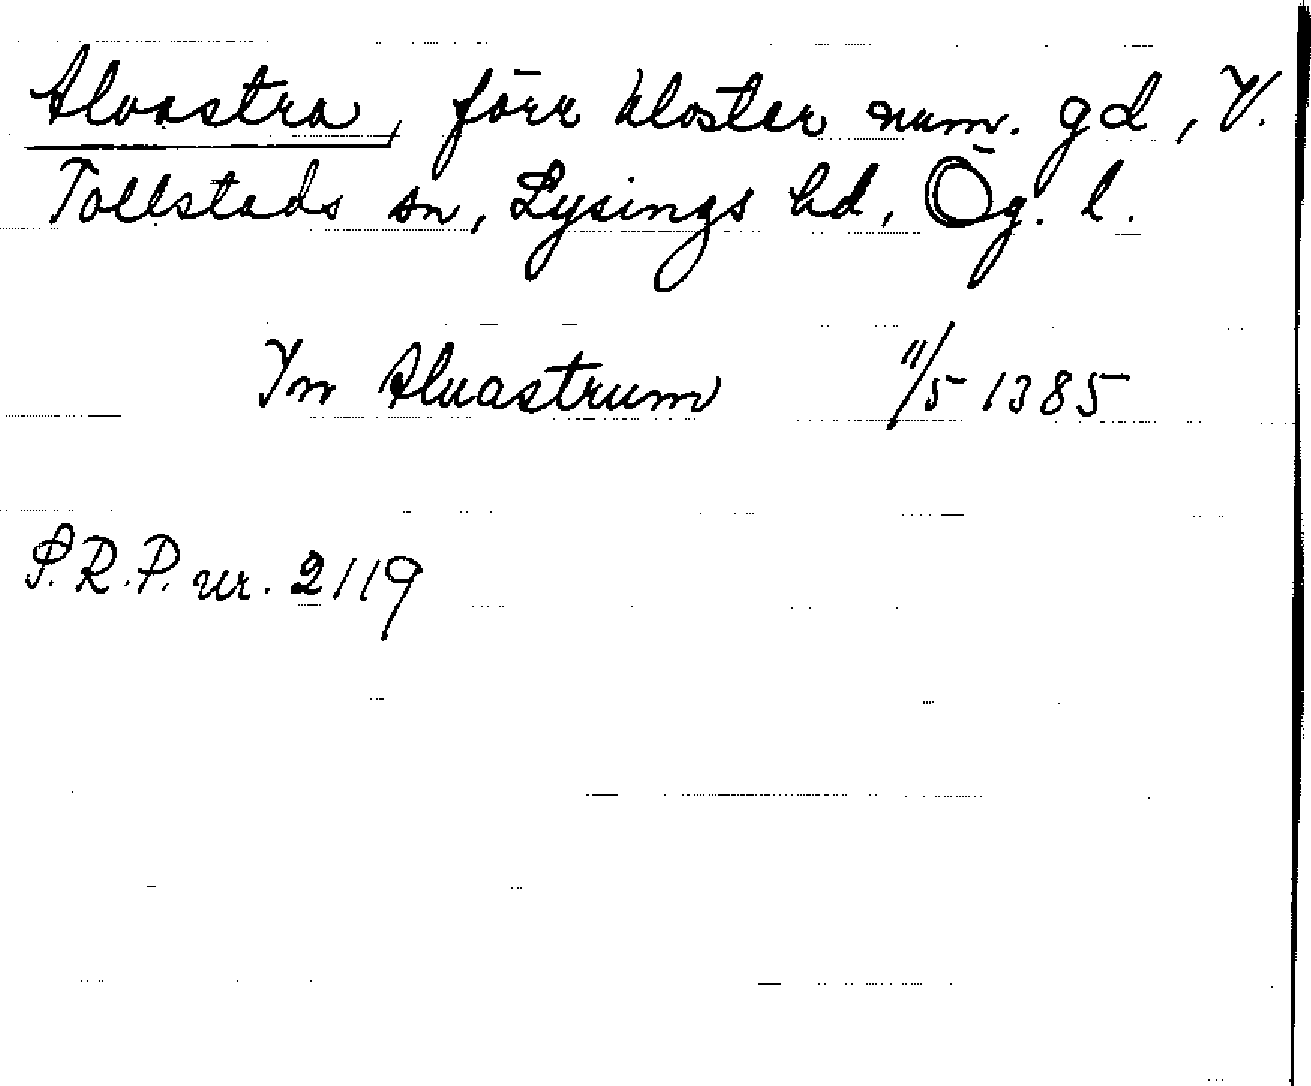 Alvastra, förr kloster num. gd, V.
Tollstads sn, Lysings hd, Ög. l.
Yn Aluastrum 11/5 1385
S.R.P. nr. 2119